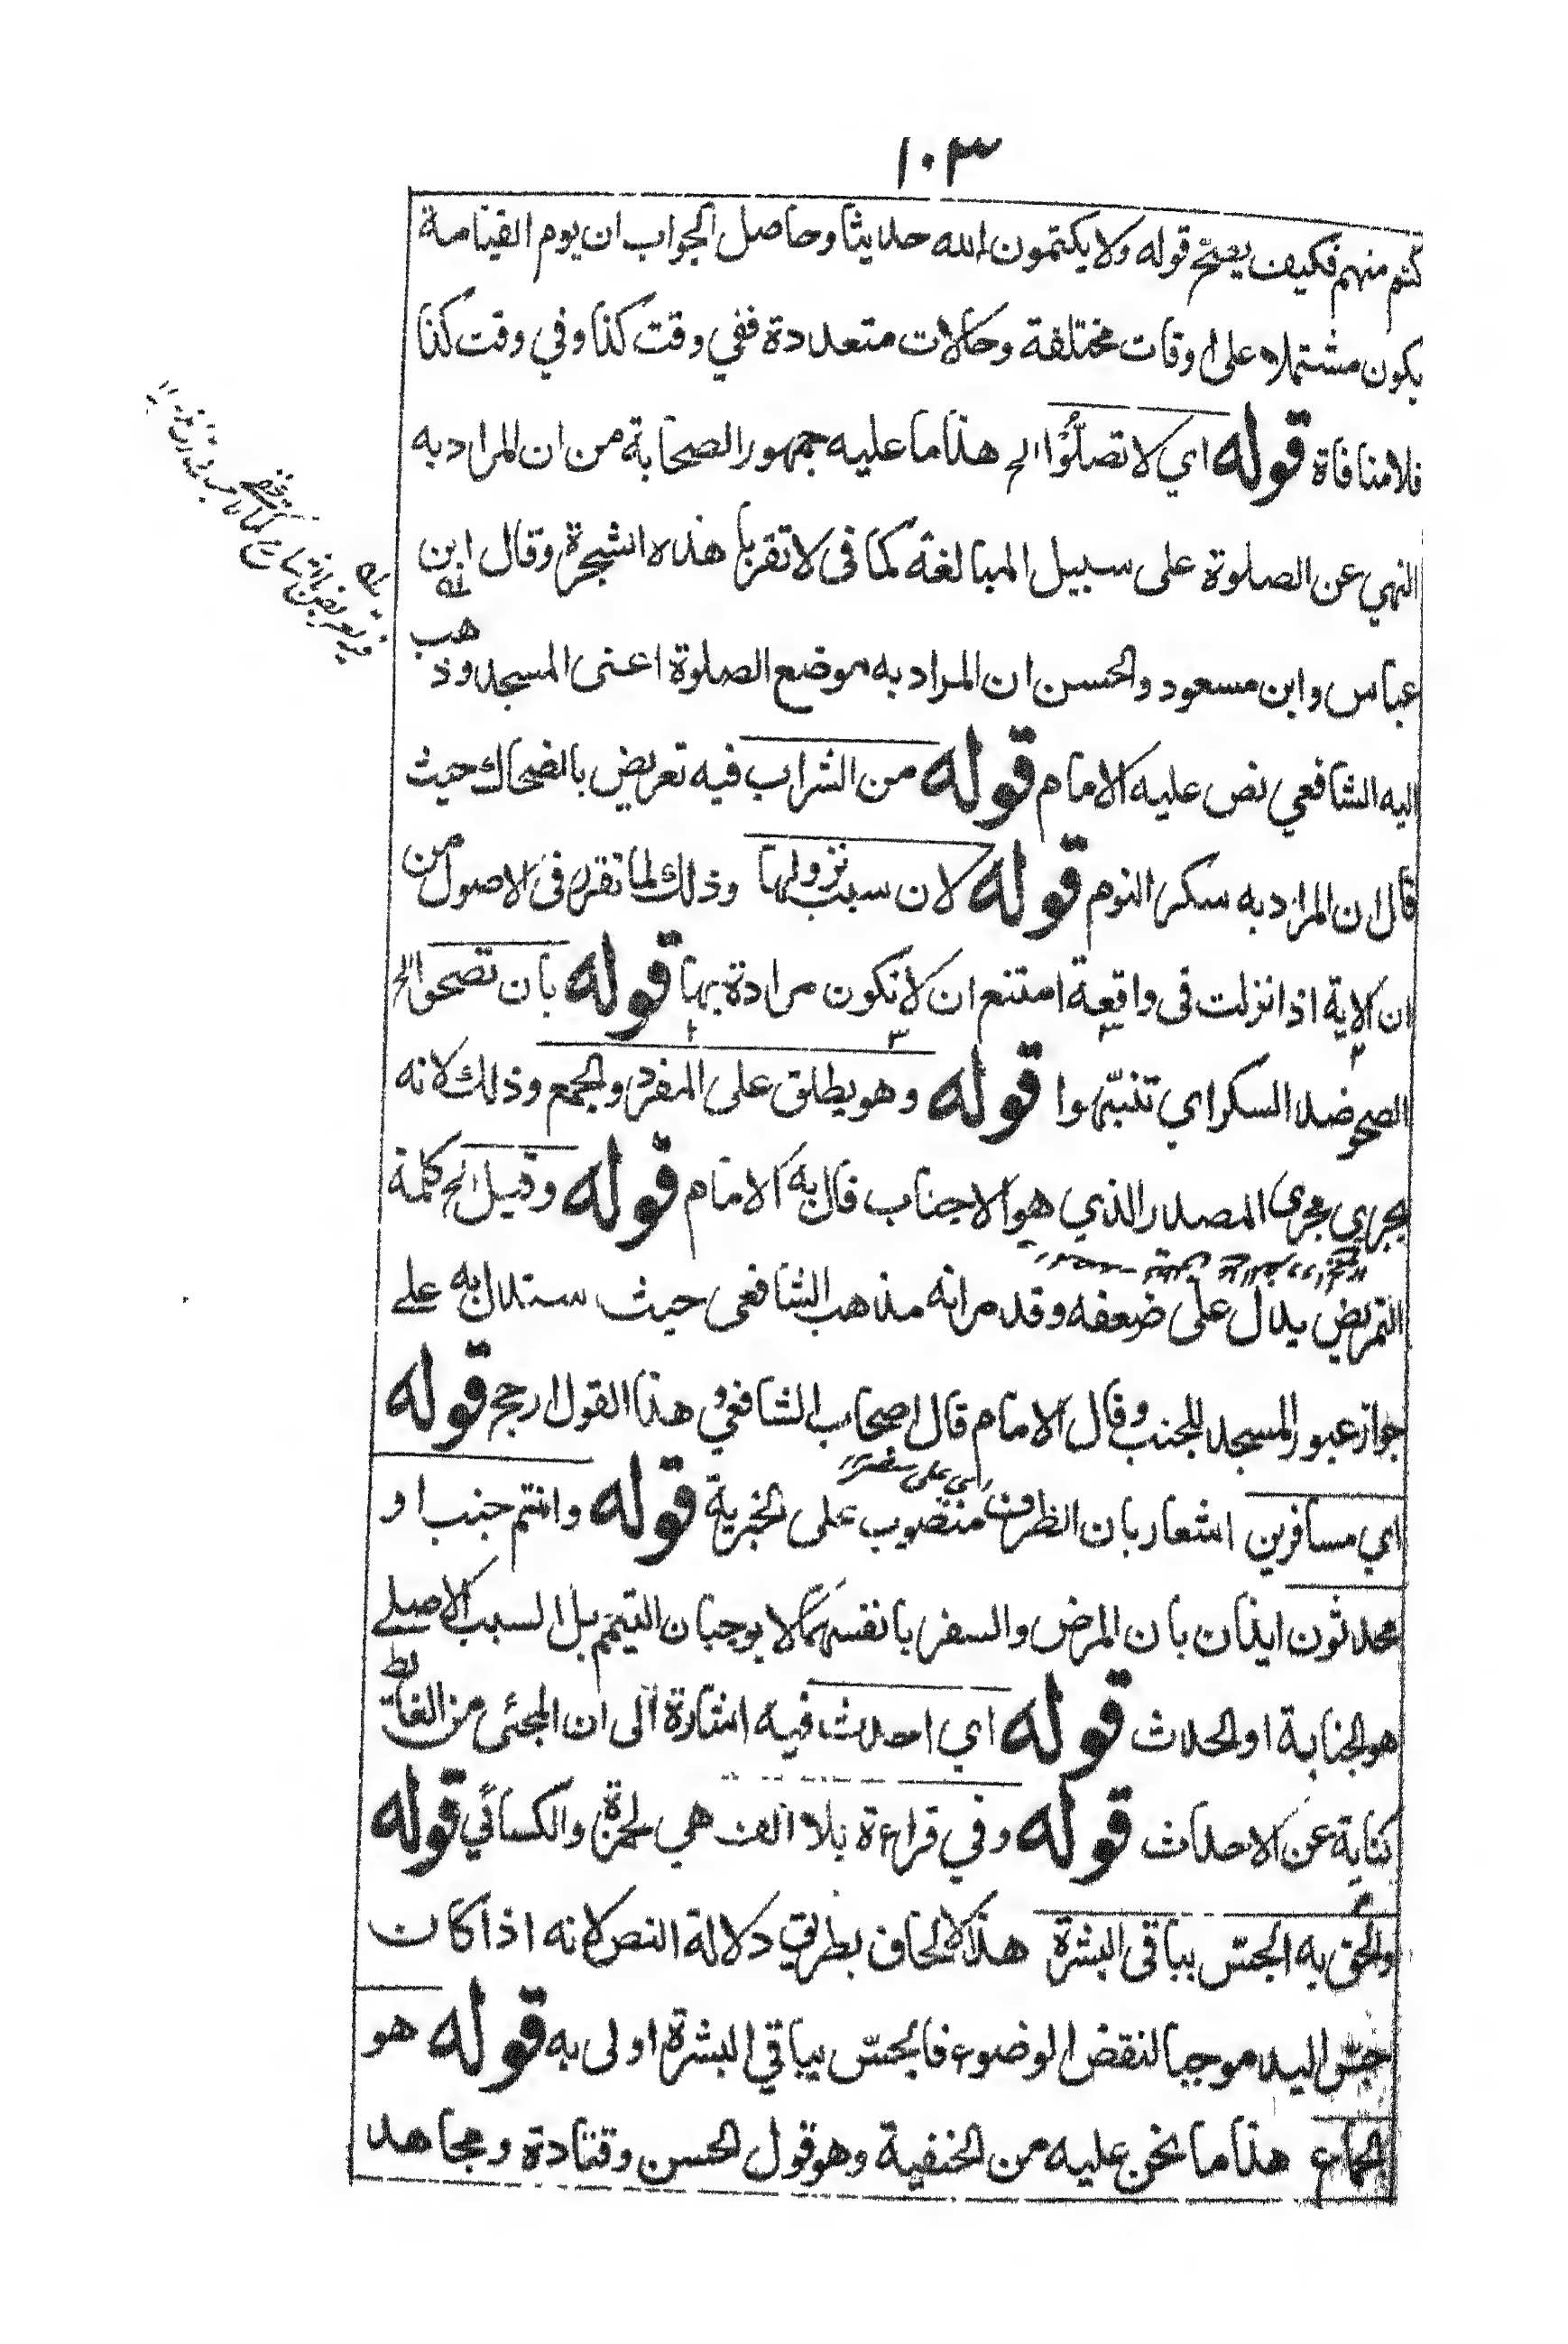 ١٠٣
كتم منهم فكيف يصح قوله ولا يكتمون الله حديثا وحاصل الجواب ان يوم القيامة
يكون مشتملا على اوقات مختلفة وحالات متعددة ففي وقت كذا وفي وقت كذا
فلا منافاة قوله اي لا تصلّوا الخ هذا ما عليه جمهور الصحابة من ان المراد به
النهي عن الصلوة على سبيل المبالغة كما في لا تقربا هذه الشجرة وقال ابن
عباس وابن مسعود والحسن ان المراد به موضع الصلوة اعني المسجد وذهب
اليه الشافعي نص عليه الامام قوله من الشراب فيه تعريض بالضحاك حيث
قال ان المراد به سكر النوم قوله لان سبب نزولها وذلك لما تقرر في الاصول من
ان الاية اذا نزلت في واقعة امتنع ان لا تكون مرادة بها قوله بان تصحوا الخ
الصحو ضد السكر اي تنبّهوا قوله وهو يطلق على المفرد والجمع وذلك لانه
يجري مجرى المصدر الذي هو الاجناب قال به الامام قوله وقيل الخ كلمة
التمريض يدل على ضعفه وقد مر انه مذهب الشافعي حيث ستدل به على
جواز عبور المسجد للجنب وقال الامام قال اصحاب الشافعي وهذا القول ارجح قوله
اي مسافرين اشعار بان الظرف منصوب على الخبرية قوله وانتم جنب او
اي على سفر
محدثون ايذان بان المرض والسفر بانفسهما لا يوجبان التيمم بل السبب الاصلي
هو الجنابة او الحدث قوله اي احدث فيه اشارة الى ان المجئ من الغائط
كناية عن الاحداث قوله وفي قراءة بلا الف هي لحمزة والكسائي قوله
والحق به الجس بباقي البشرة هذا الالحاق بطريق دلالة النص لانه اذا كان
جسّ اليد موجبا لنقض الوضوء فالجسّ بباقي البشرة اولى به قوله هو
الجماع هذا ما نحن عليه من الحنفية وهو قول الحسن وقتادة ومجاهد